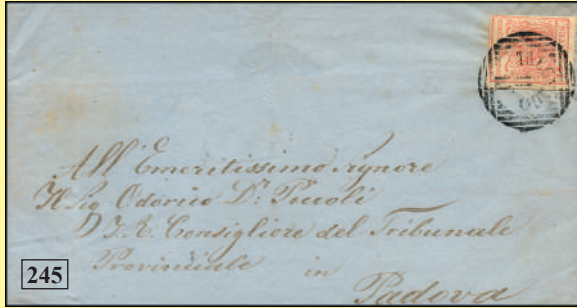 All'Emeritissimo Signore
Il Sig Odorico Dr. Piccoli
I. R. Consigliere del Tribunale
Provinciale in
Padova
245